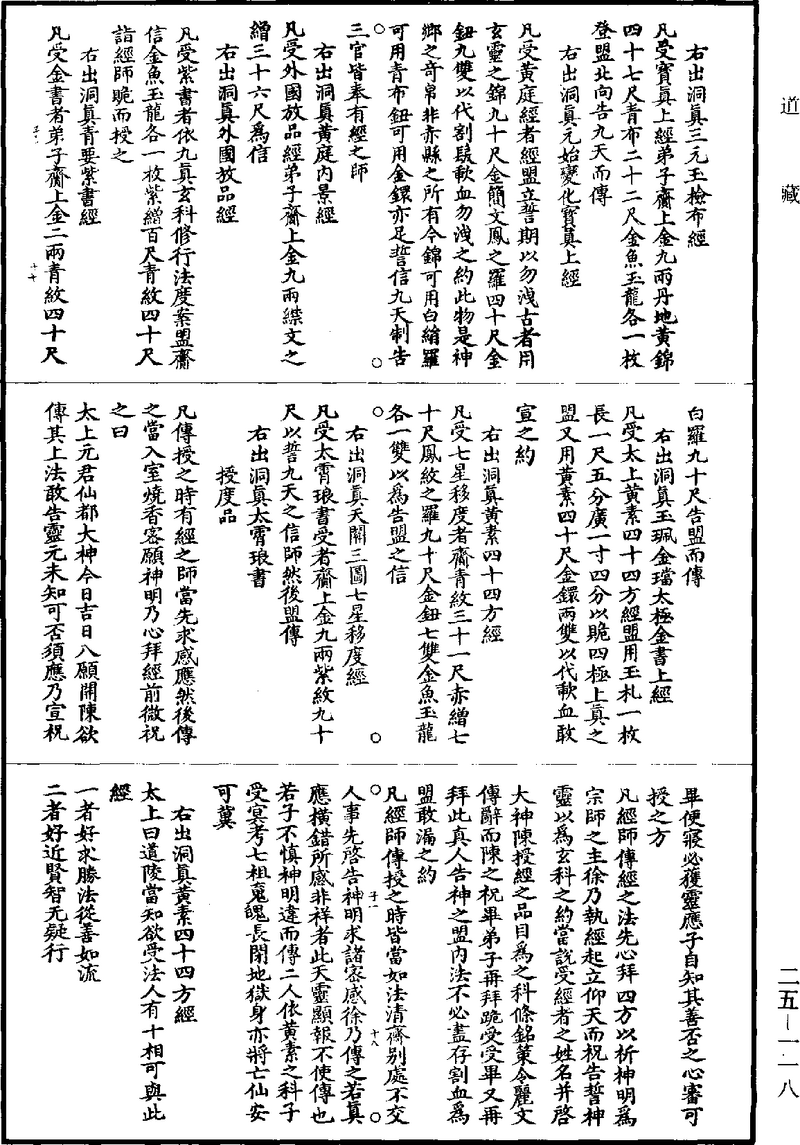 道藏
右出洞真三元玉檢布經
凡受寶真上經弟子齎上金九兩丹地黃錦
四十七尺青布二十二尺金魚玉龍各一枚
登盟北向告九天而傳
右出洞真元始變化寶真上經
凡受黃庭經者經盟立誓期以勿洩古者用
玄靈之錦九十尺金簡文鳳之羅四十尺金
鈕九雙以代割髮歃血勿洩之約此物是神
鄉之奇帛非赤縣之所有今錦可用白絹羅
可用青布鈕可用金鐶亦足誓信九天制告
三官皆奉有經之師
右出洞真黃庭內景經
凡受外國放品經弟子齎上金九兩緤文之
繒三十六尺為信
右出洞真外國放品經
凡受紫書者依九真玄科修行法度案盟齎
信金魚玉龍各一枚紫繒百尺青紋四十尺
詣經師跪而授之
右出洞真青要紫書經
凡受金書者弟子齎上金二兩青紋四十尺
白羅九十尺告盟而傳
右出洞真玉珮金璫太極金書上經
凡受太上黃素四十四方經盟用玉札一枚
長一尺五分廣一寸四分以跪四極上真之
盟又用黃素四十尺金鐶兩雙以代歃血敢
宣之約
右出洞真黃素四十四方經
凡受七星移度者齎青紋三十一尺赤繒七
十尺鳳紋之羅九十尺金鈕七雙金魚玉龍
各一雙以為告盟之信
右出洞真天關三圖七星移度經
凡受太霄琅書受者齎上金九兩紫紋九十
尺以誓九天之信師然後盟傳
右出洞真太霄琅書
授度品
凡傳授之時有經之師當先求感應然後傳
之當入室燒香密願神明乃心拜經前微祝
之曰
太上元君仙都大神今日吉日八願開陳欲
傳其上法敢告靈元未知可否須應乃宣祝
畢便寢必獲靈應子自知其善否之心審可
授之方
凡經師傳經之法先心拜四方以祈神明為
宗師之主徐乃執經起立仰天而祝告誓神
靈以為玄科之約當說受經者之姓名并啓
大神陳授經之品目為之科條銘策令麗文
傳辭而陳之祝畢弟子再拜跪受受畢又再
拜此真人告神之盟內法不必盡存割血為
盟敢漏之約
凡經師傳授之時皆當如法清齋别處不交
人事先啓告神明求諸密感徐乃傳之若真
應橫錯所感非祥者此天靈顯報不使傳也
若子不慎神明違而傳二人依黃素之科子
受冥考七祖鬼魄長閉地獄身亦將亡仙安
可冀
右出洞真黃素四十四方經
太上曰道陵當知欲受法人有十相可與此
經
一者好求勝法從善如流
二者好近賢智无疑行
二五—一一八